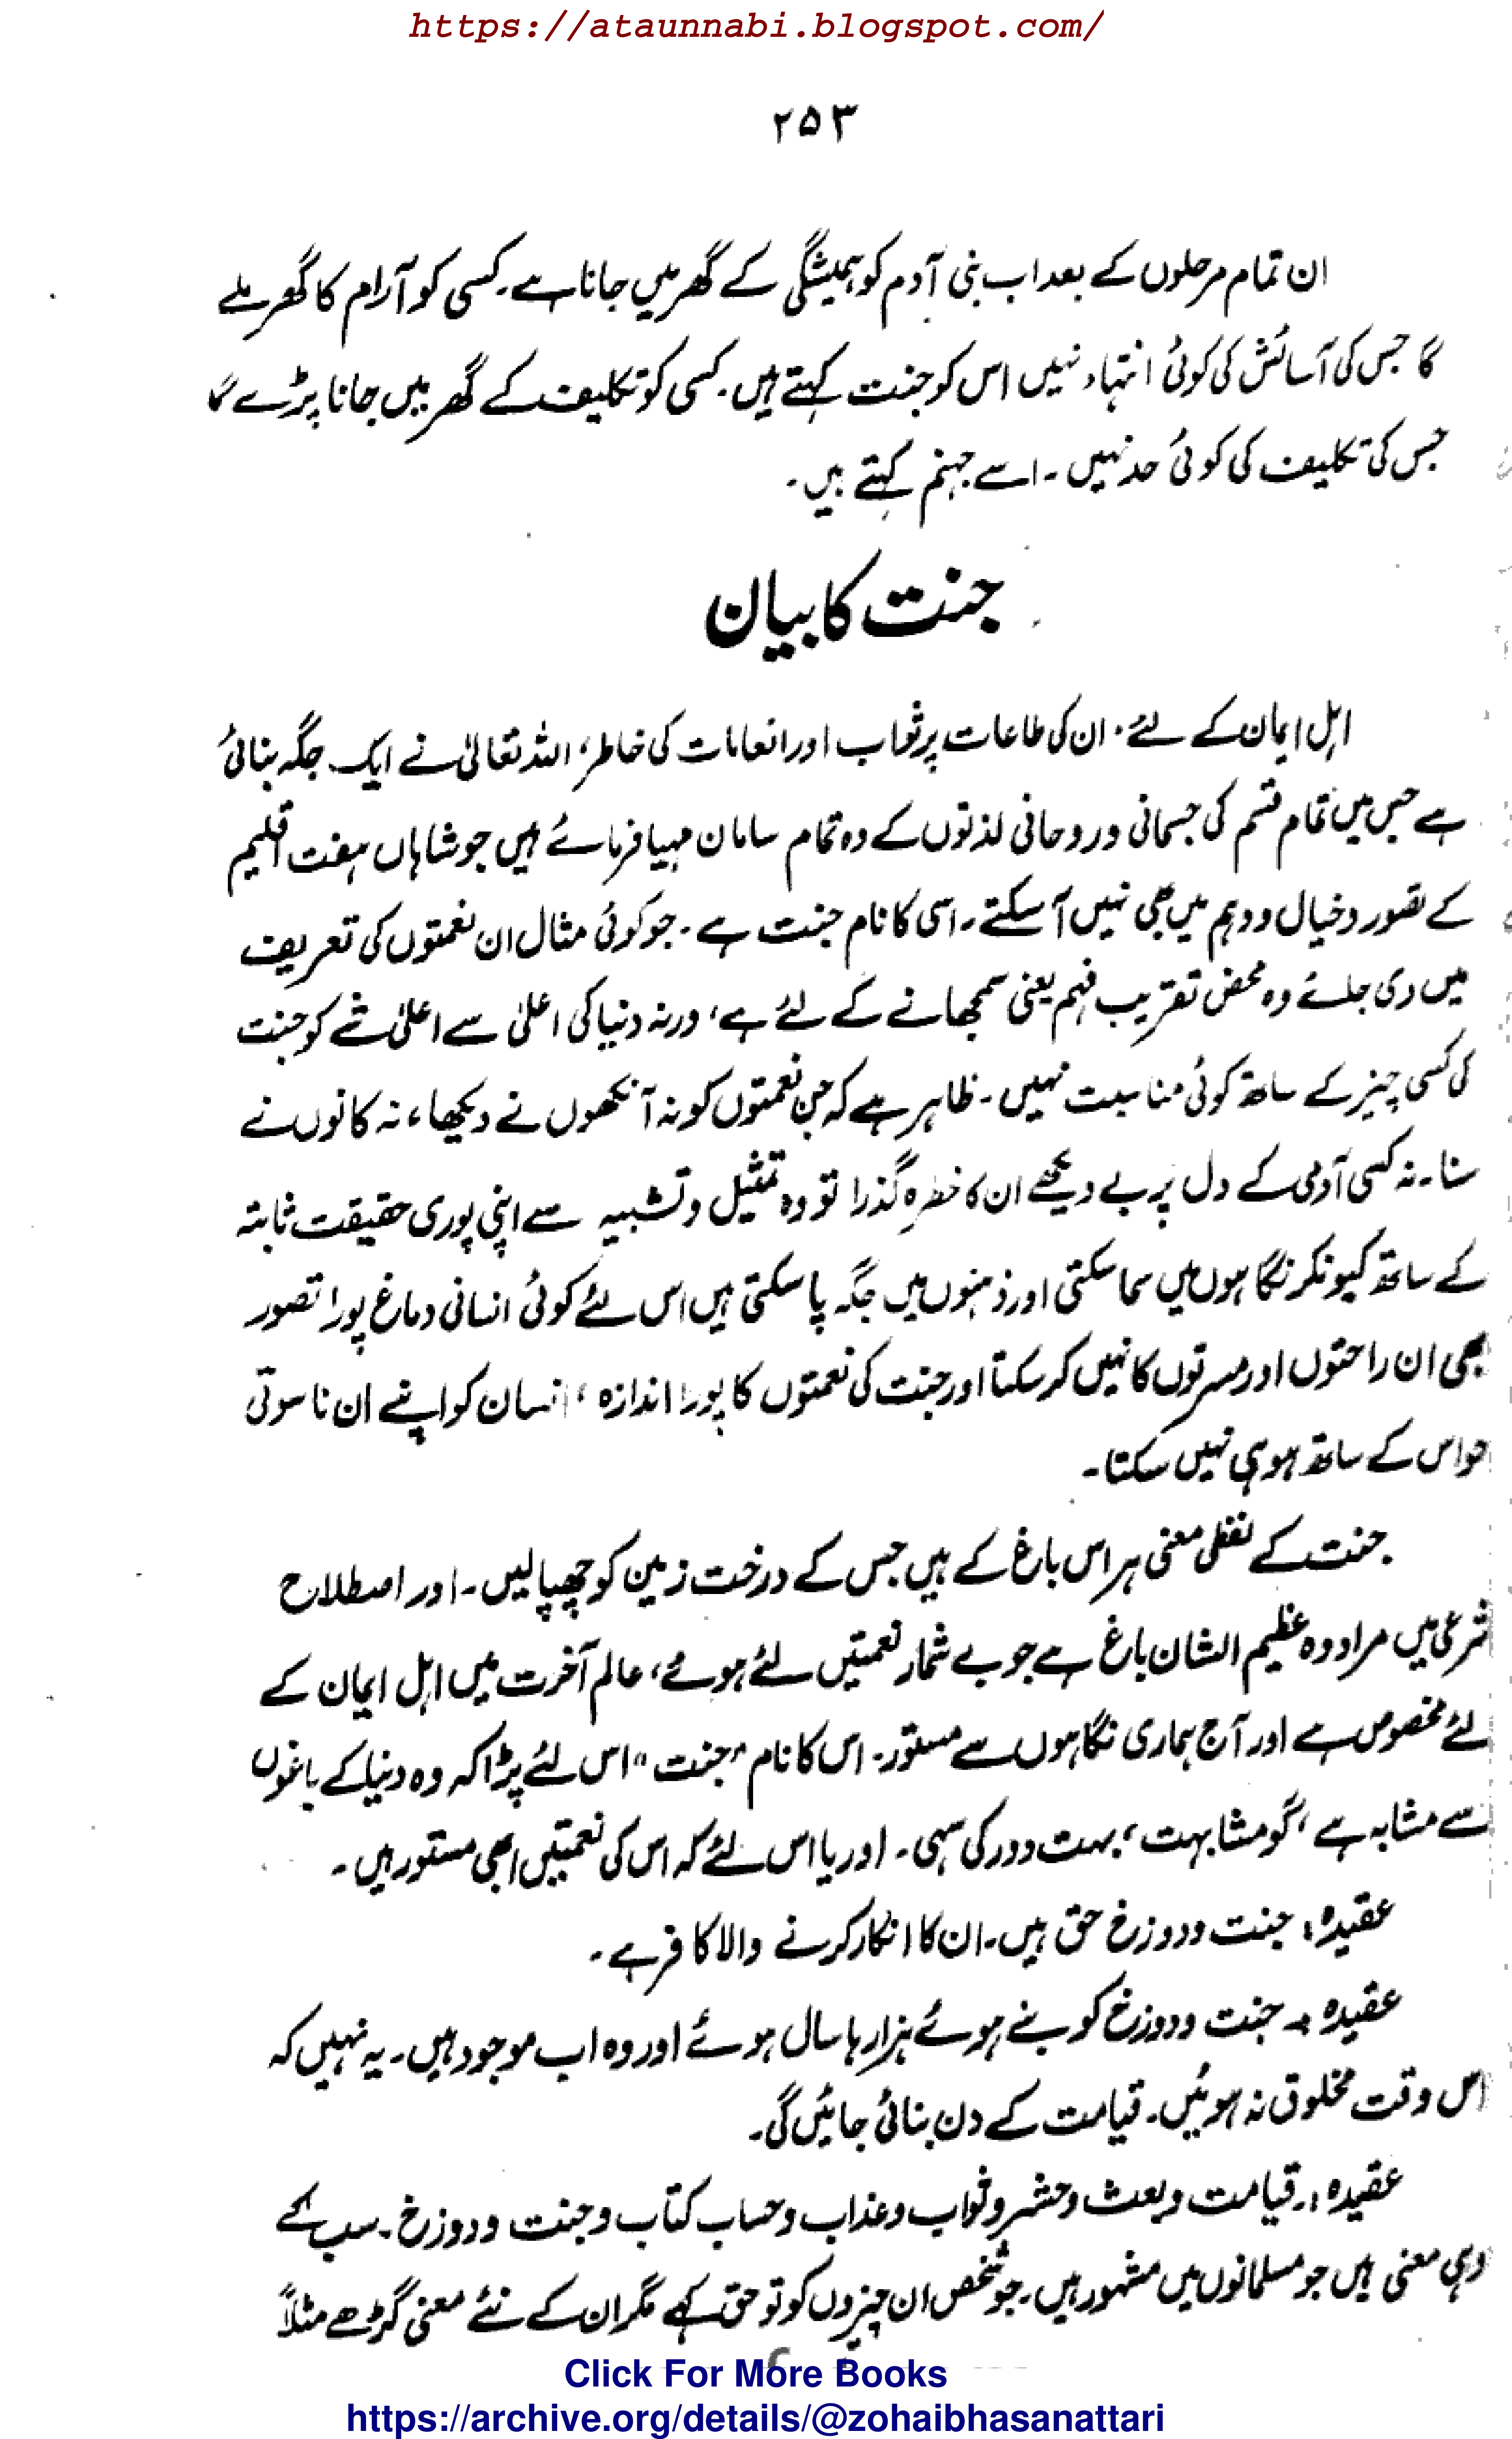 https://ataunnabi.blogspot.com/
۲۵۳
ان تمام مرحلوں کے بعد اب بنی آدم کو ہمیشگی کے گھر میں جانا ہے۔ کسی کو آرام کا گھر ملے
گا جس کی آسائش کی کوئی انتہاء نہیں اس کو جنت کہتے ہیں۔ کسی کو تکلیف کے گھر میں جانا پڑے گا
جس کی تکلیف کی کوئی حد نہیں۔ اسے جہنم کہتے ہیں۔
جنت کا بیان
اہل ایمان کے لئے، ان کی طاعات پر ثواب اور انعامات کی خاطر، اللہ تعالیٰ نے ایک جگہ بنائی
ہے جس میں تمام قسم کی جسمانی و روحانی لذتوں کے وہ تمام سامان مہیا فرمائے ہیں جو شاہاں ہفت اقلیم
کے تصور و خیال و وہم میں بھی نہیں آ سکتے۔ اسی کا نام جنت ہے۔ جو کوئی مثال ان نعمتوں کی تعریف
میں دی جائے وہ محض تقریب فہم یعنی سمجھانے کے لئے ہے، ورنہ دنیا کی اعلیٰ سے اعلیٰ شے کو جنت
کی کسی چیز کے ساتھ کوئی مناسبت نہیں۔ ظاہر ہے کہ جن نعمتوں کو نہ آنکھوں نے دیکھا، نہ کانوں نے
سنا۔ نہ کسی آدمی کے دل پر بے دیکھے ان کا خطرہ گذرا تو وہ تمثیل و تشبیہ سے اپنی پوری حقیقت ثابتہ
کے ساتھ کیونکر نگاہوں میں سما سکتی اور ذہنوں میں جگہ پا سکتی ہیں اس لئے کوئی انسانی دماغ پورا تصور
بھی ان راحتوں اور مسرتوں کا نہیں کر سکتا اور جنت کی نعمتوں کا پورا اندازہ، انسان کو اپنے ان ناسوتی
حواس کے ساتھ ہو ہی نہیں سکتا۔
جنت کے لفظی معنی ہر اس باغ کے ہیں جس کے درخت زمین کو چھپا لیں۔ اور اصطلاح
شرعی میں مراد وہ عظیم الشان باغ ہے جو بے شمار نعمتیں لئے ہوئے، عالم آخرت میں اہل ایمان کے
لئے مخصوص ہے اور آج ہماری نگاہوں سے مستور۔ اس کا نام "جنت" اس لئے پڑا کہ وہ دنیا کے باغوں
سے مشابہ ہے، گو مشابہت، بہت دور کی سہی۔ اور یا اس لئے کہ اس کی نعمتیں ابھی مستور ہیں۔
عقیدہ: جنت و دوزخ حق ہیں۔ ان کا انکار کرنے والا کافر ہے۔
عقیدہ :۔ جنت و دوزخ کو بنے ہوئے ہزارہا سال ہوئے اور وہ اب موجود ہیں۔ یہ نہیں کہ
اس وقت مخلوق نہ ہوئیں۔ قیامت کے دن بنائی جائیں گی۔
عقیدہ :۔ قیامت و بعث و حشر و ثواب و عذاب و حساب کتاب و جنت و دوزخ۔ سب کے
وہی معنی ہیں جو مسلمانوں میں مشہور ہیں۔ جو شخص ان چیزوں کو تو حق کہے مگر ان کے نئے معنی گڑھے مثلاً
Click For More Books
https://archive.org/details/@zohaibhasanattari